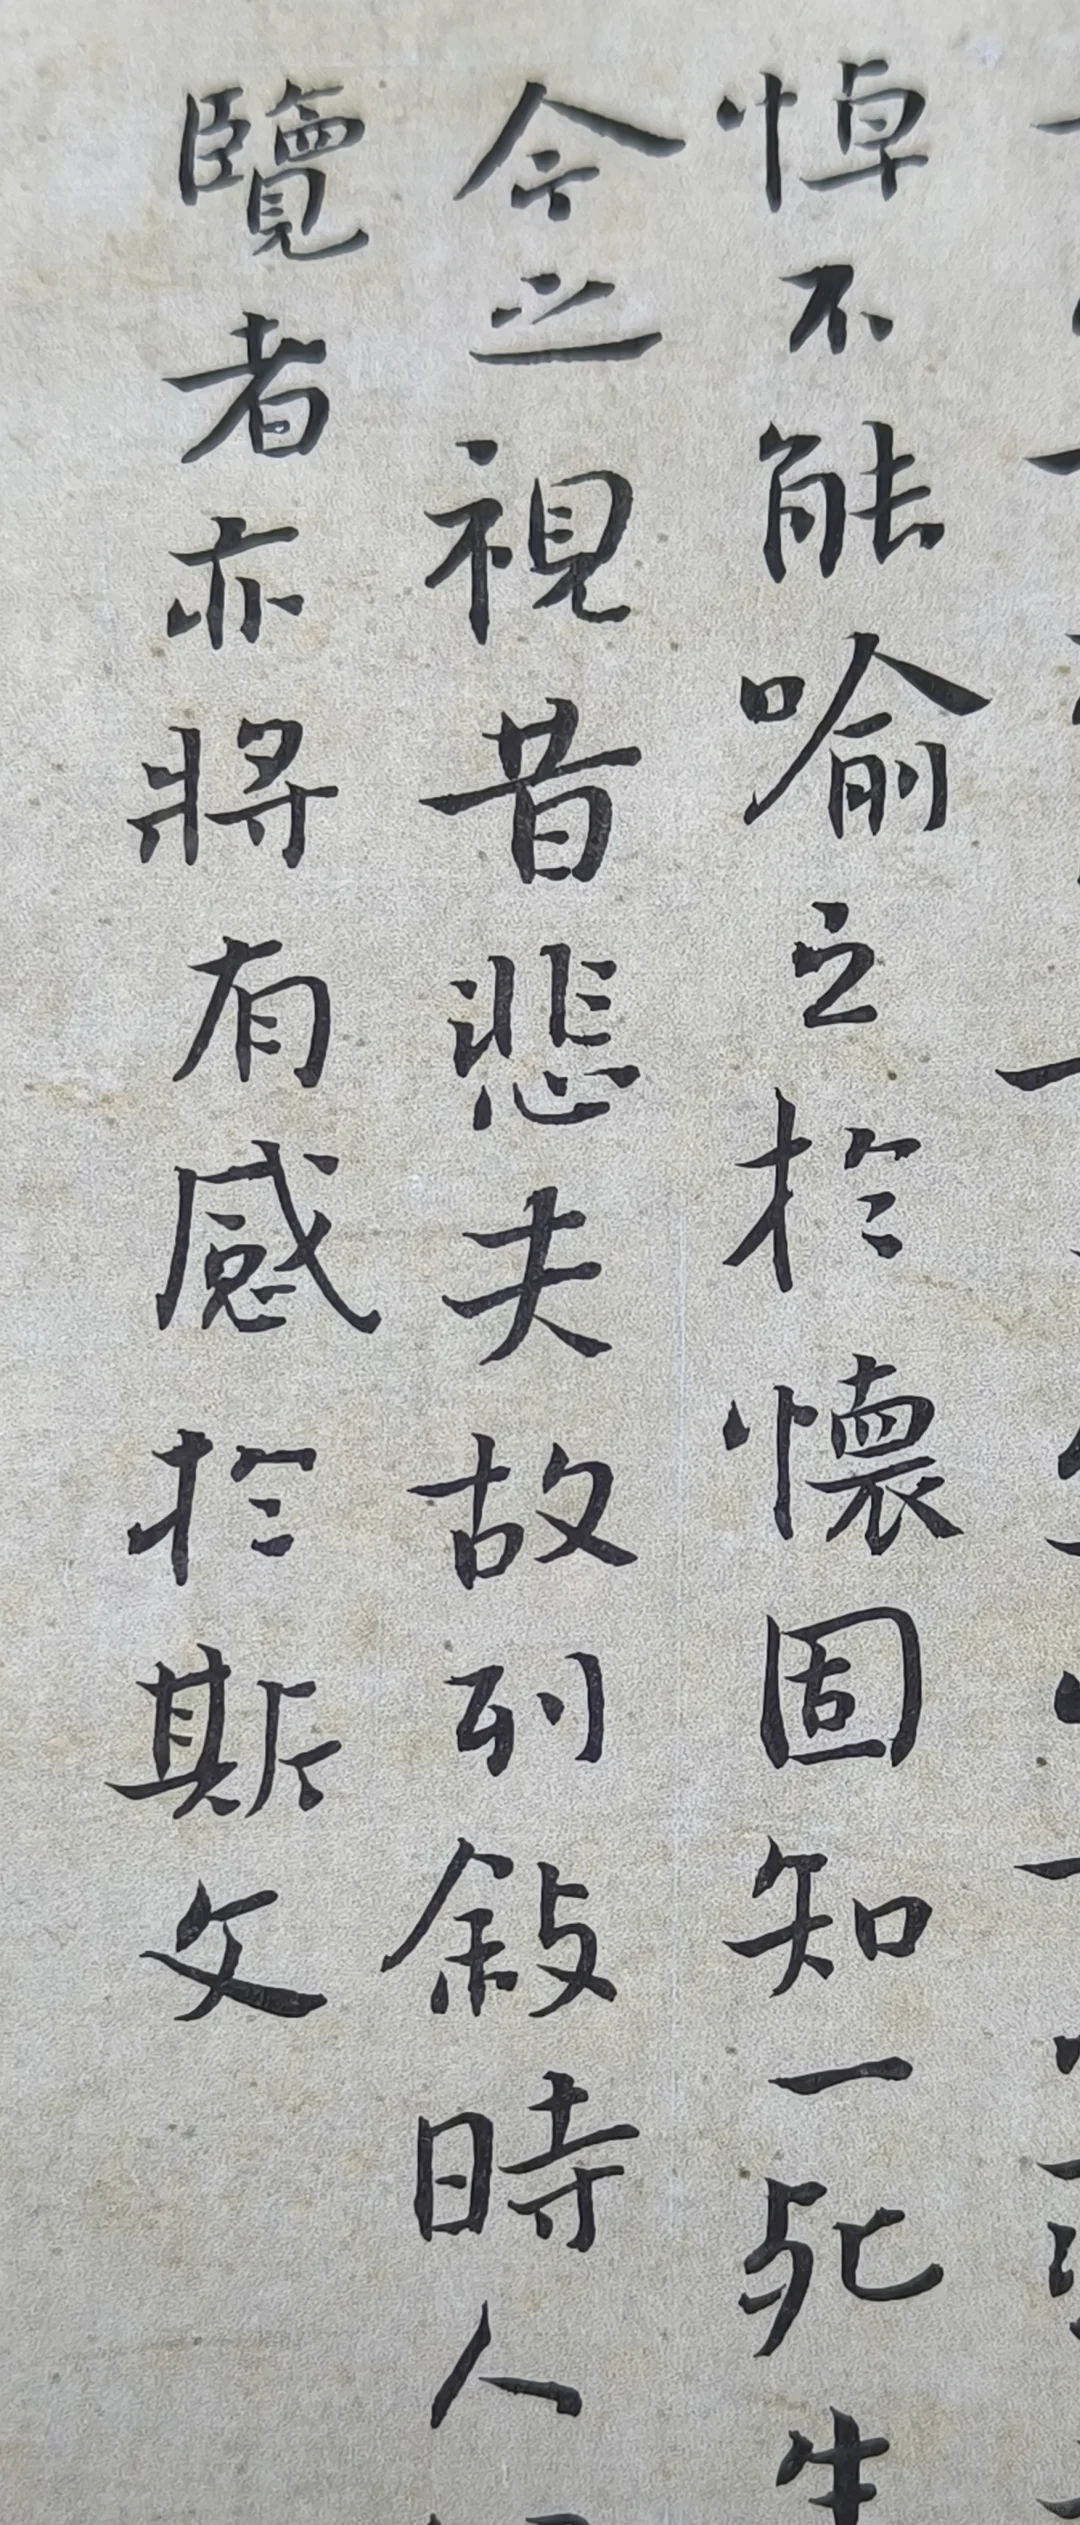 悼不能喻之於懷固知一死生
今之視昔悲夫故列敘時人
覽者亦將有感於斯文